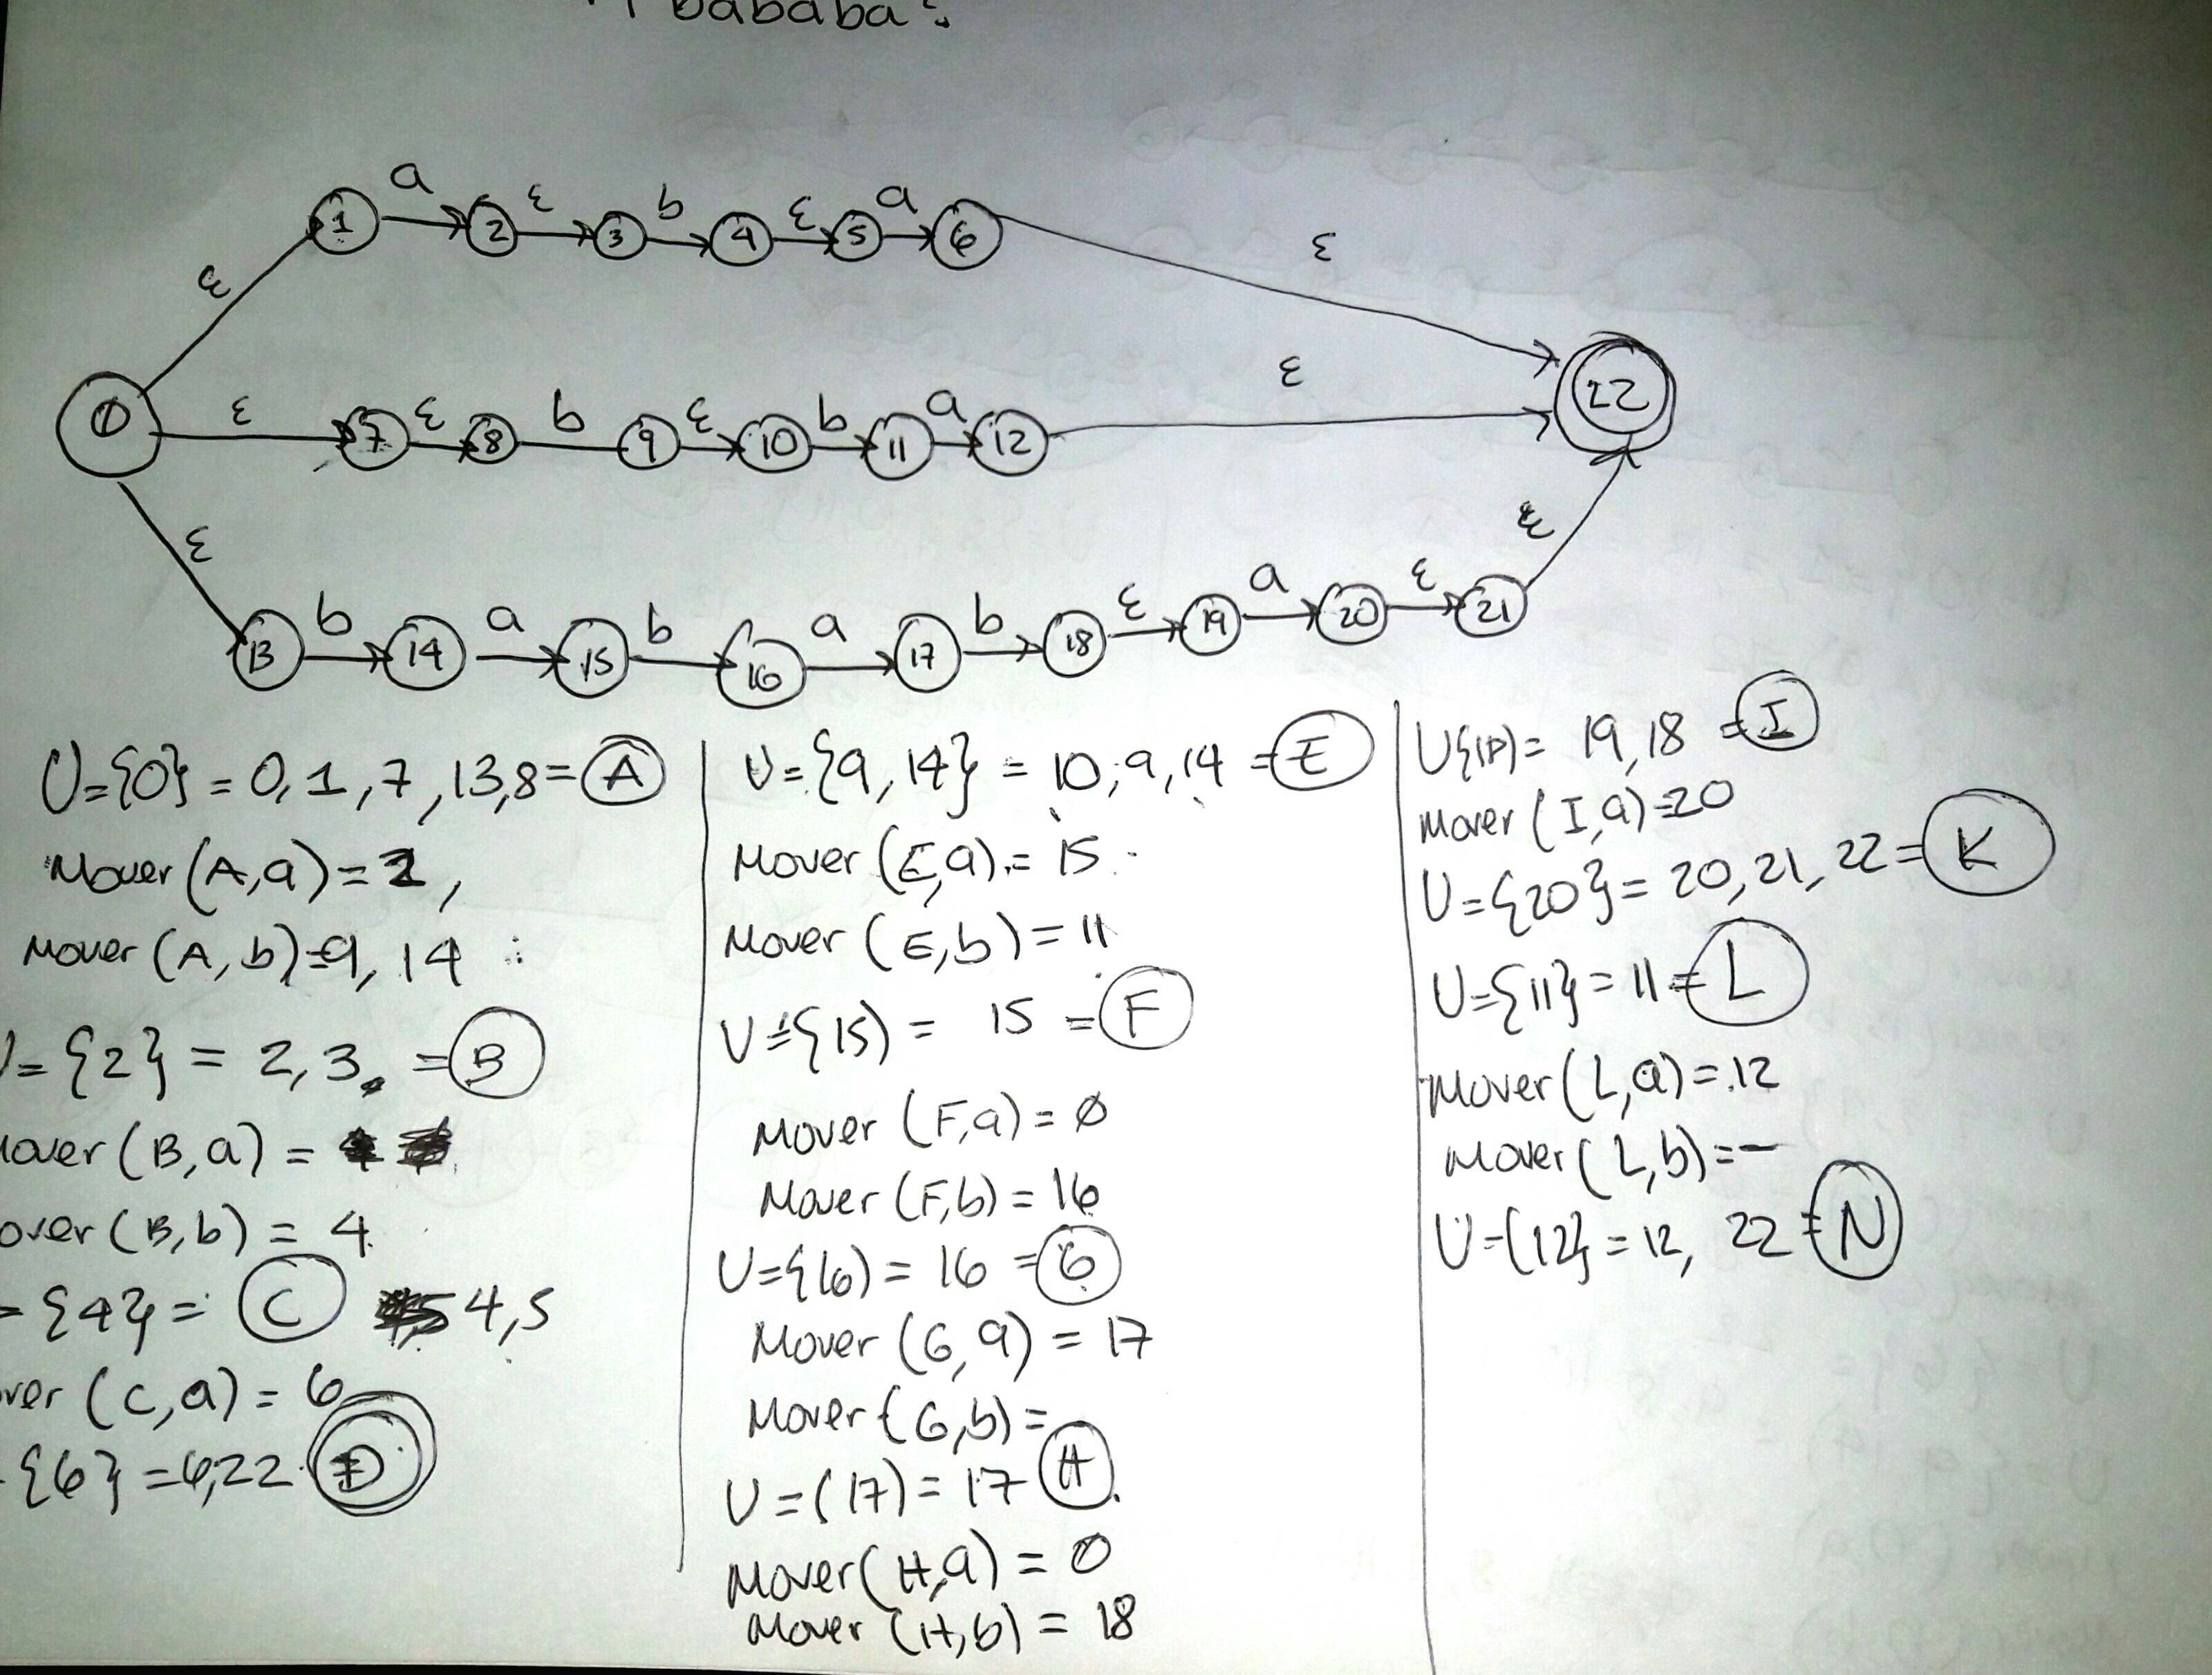 bababa
a ε b ε a
1 2 3 4 5 6
ε ε
0 ε 7 ε 8 b 9 ε 10 b 11 a 12 ε 22
ε ε
13 b 14 a 15 b 16 a 17 b 18 ε 19 a 20 ε 21
U={0} = 0, 1, 7, 13, 8 = A
Mover (A,a) = 2,
Mover (A, b)=9, 14
U= {2} = 2, 3, = B
Mover (B,a) =
over (B,b) = 4
= {4} = C 4,5
ver (C,a) = 6
{6} = 6,22 D
U={9, 14} = 10, 9, 14 = E
Mover (E,a) = 15
Mover (E,b) = 11
U={15) = 15 = F
Mover (F,a) = ø
Mover (F,b) = 16
U={16) = 16 = G
Mover (G,a) = 17
Mover (G,b) =
U=(17) = 17 H
Mover (H,a) = 0
Mover (H,b) = 18
U{18)= 19, 18 = I
Mover (I,a)=20
U={20} = 20, 21, 22 = K
U={11} = 11 = L
Mover (L,a) = 12
Mover (L,b) = -
U=(12} = 12, 22 = N